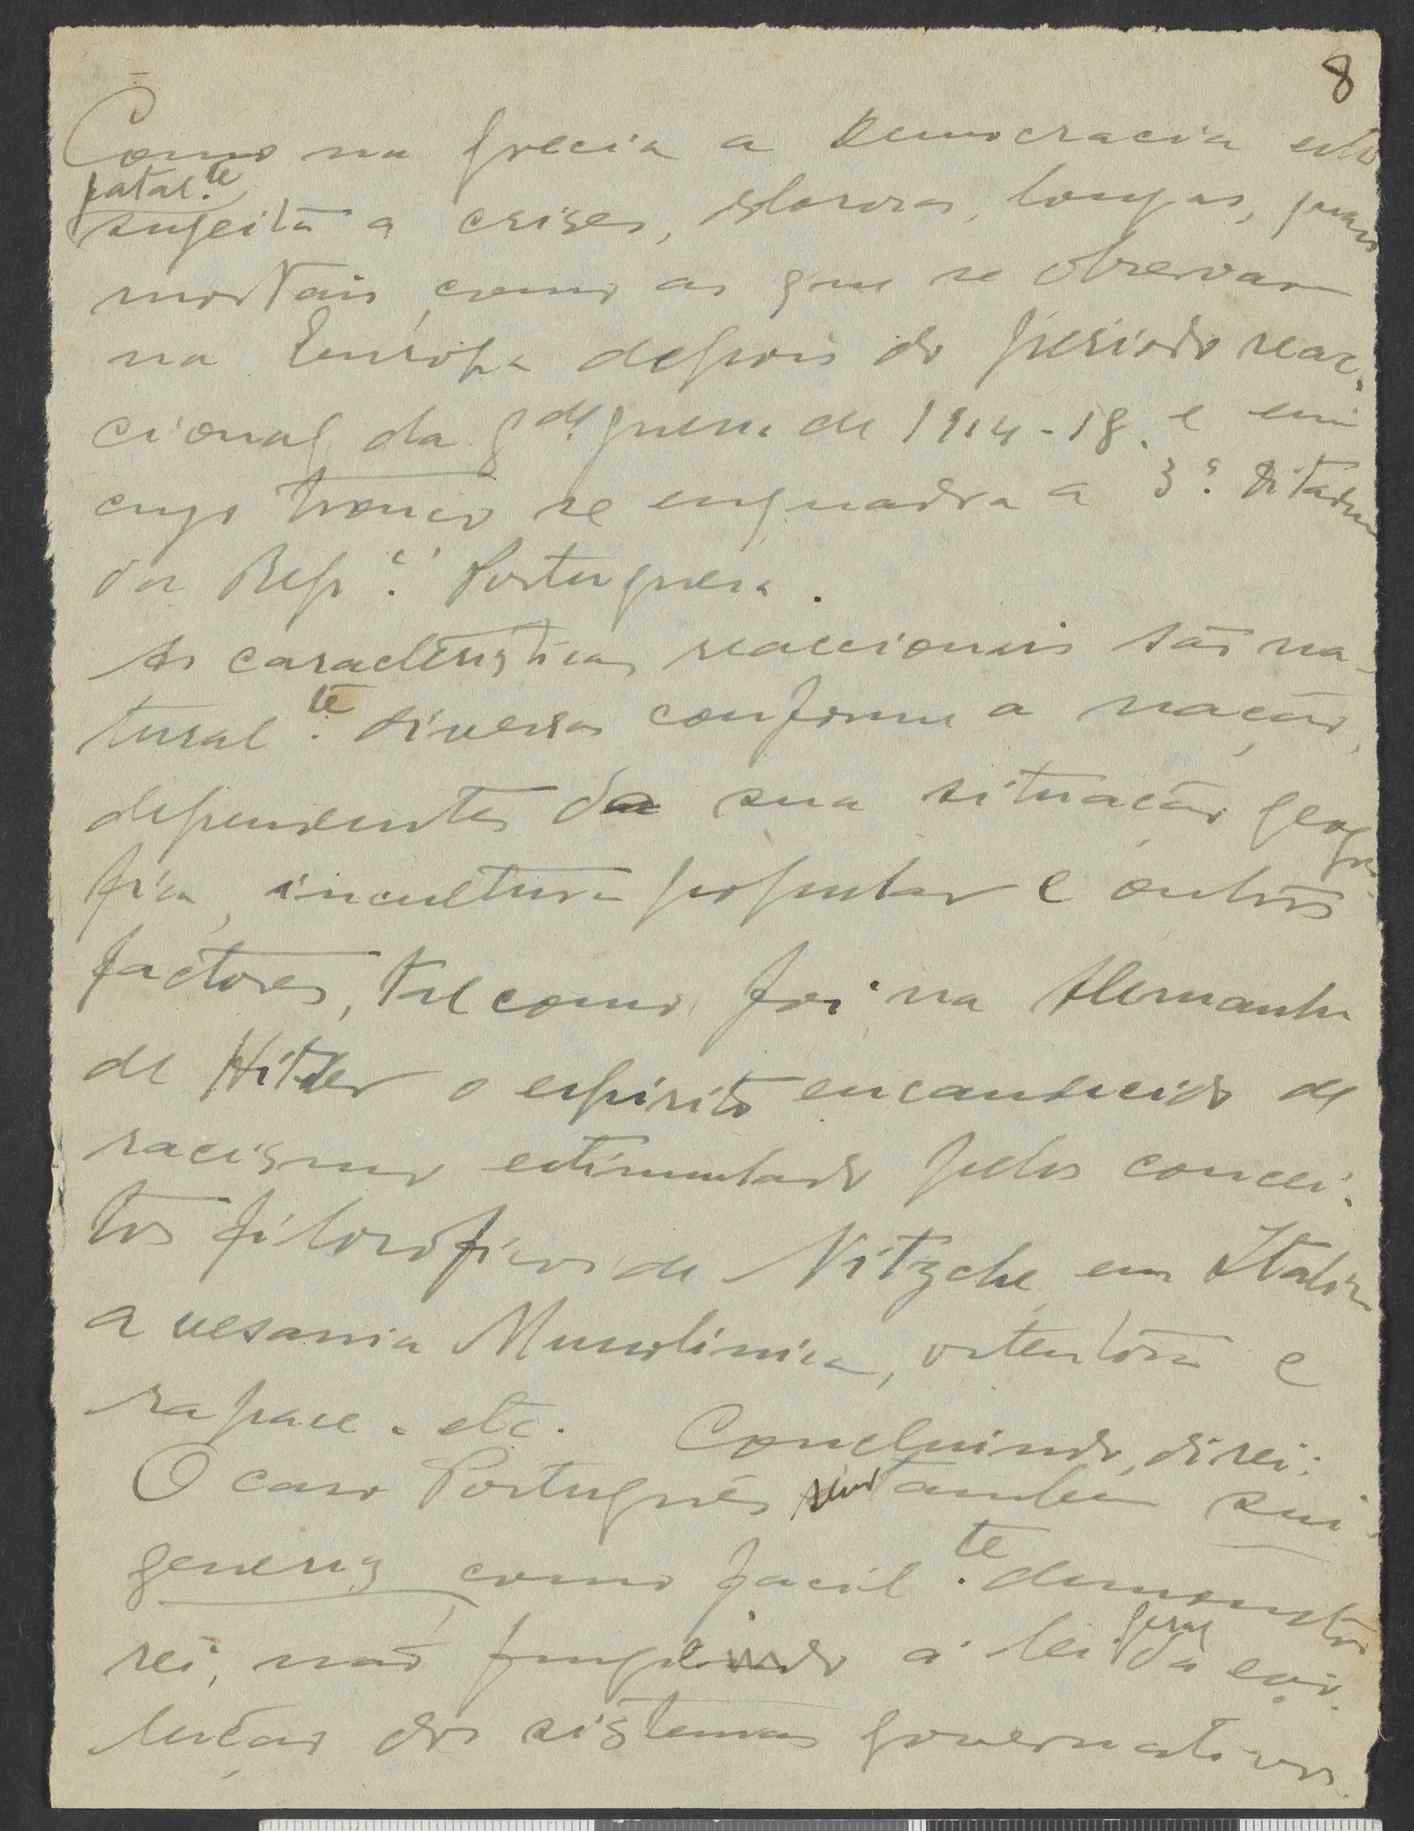 8
Como na Grecia a Democracia está
fatal.te
sugeita a crises, dolorosas, longas, quasi
mortais, como as que se observam
na Európa depois do periodo reac-
cional da g.de guerra de 1914-18. e em
cujo tronco se enquadra a 3ª. Ditadura
da Repª. Portuguesa.
As caracteristicas reaccionais são na-
tural.te diversas conforme a nação,
dependentes da sua situação geogra-
fica, incultura popular e outros
factores, tal como foi na Alemanha
de Hitler o espirito encandecido de
racismo estimulado pelos concei-
tos filosoficos de Nitzche, em Italia
a vesania Mussolinica, ostentora e
rapace. etc. Concluindo, direi:
O caso Português tambem sui-
generis, como facil.te demonstra-
rei, não fugindo á lei geral da evo-
lução dos sistemas governativos.